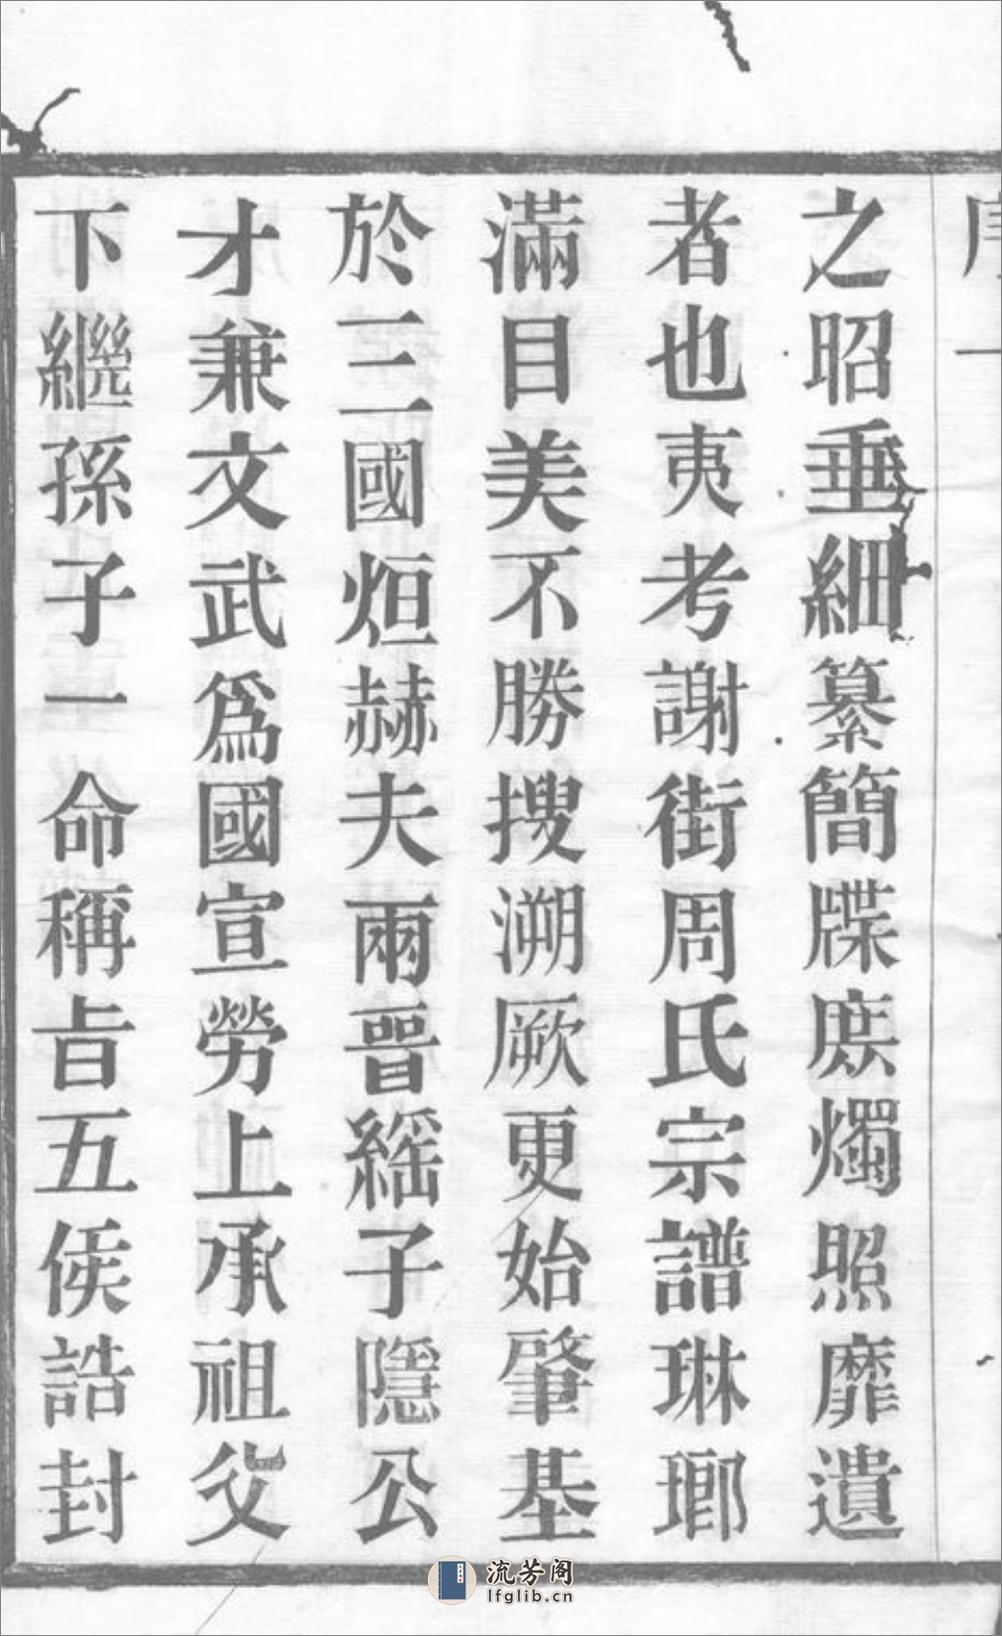 之昭垂細纂簡牒庶燭照靡遺
者也夷考謝街周氏宗譜琳瑯
滿目美不勝搜溯厥更始肇基
於三國烜赫夫兩晉繇子隱公
才兼文武為國宣勞上承祖父
下繼孫子一命稱旹五侯誥封
流芳阁
lfglib.cn